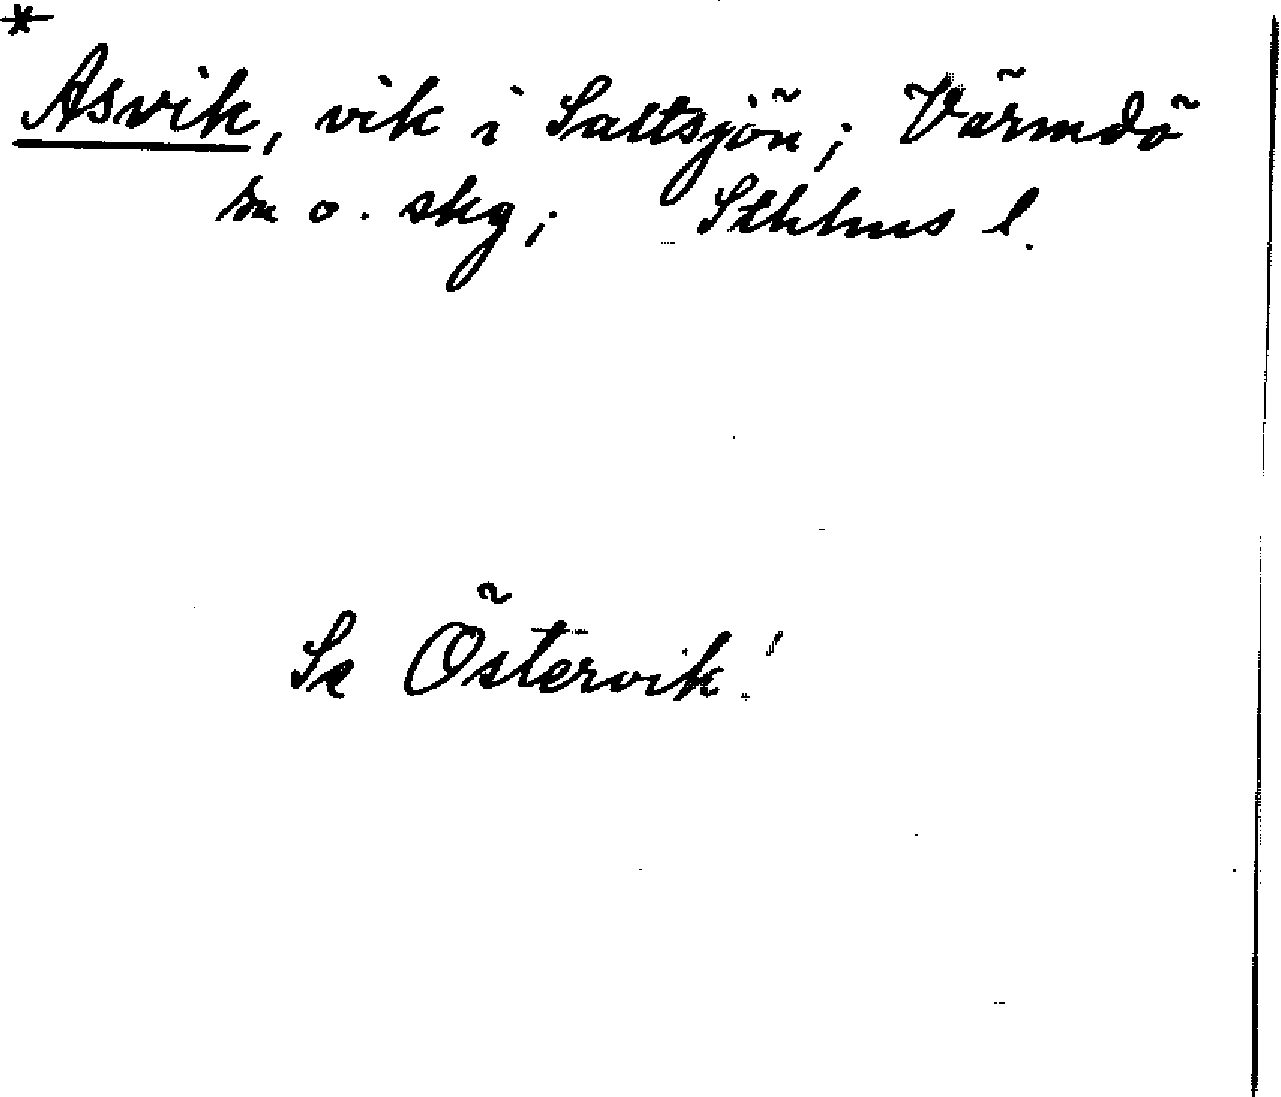 *
Asvik, vik i Saltsjön; Värmdö
sn o. skg; Sthlms l.
Se Östervik!